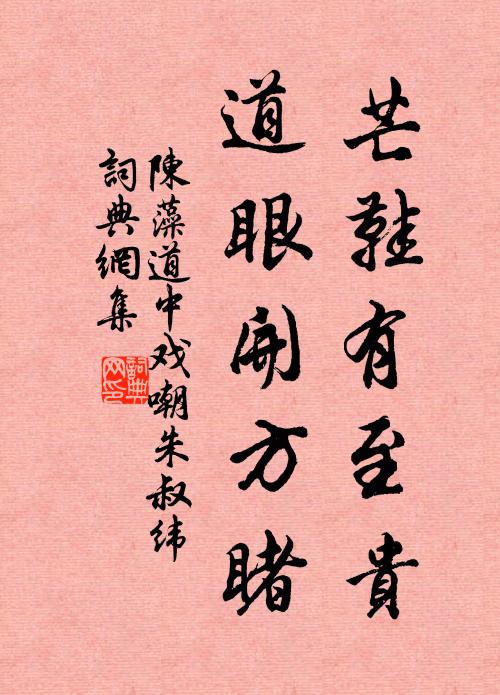 芒鞋有至貴
道眼開方睹
陳藻道中戏嘲朱叔纬
詞典網集
詞典网印